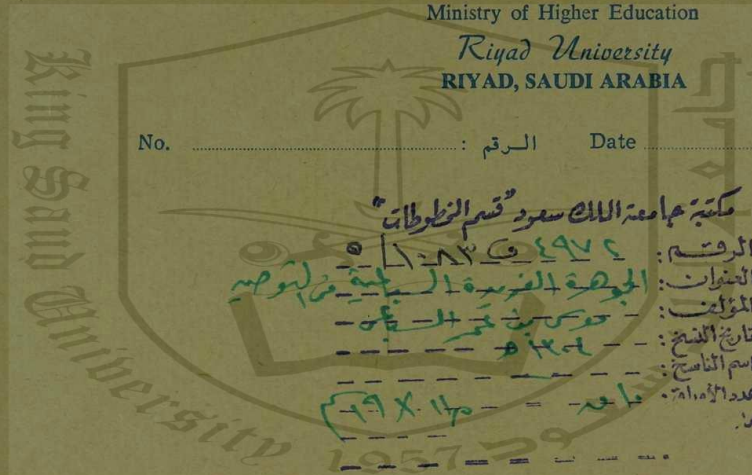 Ministry of Higher Education
Riyad University
RIYAD, SAUDI ARABIA
No. : الرقم Date
مكتبة جامعة الملك سعود "قسم المخطوطات"
الرقم: ٤٩٧٢ ف ١٠٨٣/٥
العنوان: الجوهرة الفريدة السباعية في التوحيد
المؤلف: موسى بن عمر السباعي
تاريخ النسخ: ١٣٠٤ هـ
اسم الناسخ:
عدد الأوراق:
King Saud University
1957